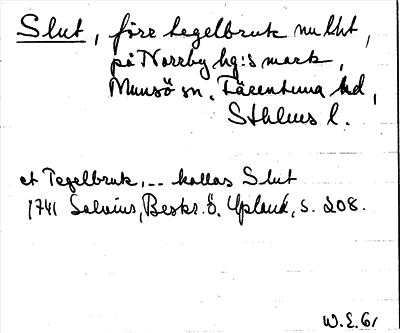 Slut, förr tegelbruk nu lht,
på Norrby hg:s mark,
Munsö sn. Färentuna hd,
Sthlms l.
et Tegelbruk, -- kallas Slut
1741 Salvius, Beskr. ö. Upland, s. 208.
W.E. 61